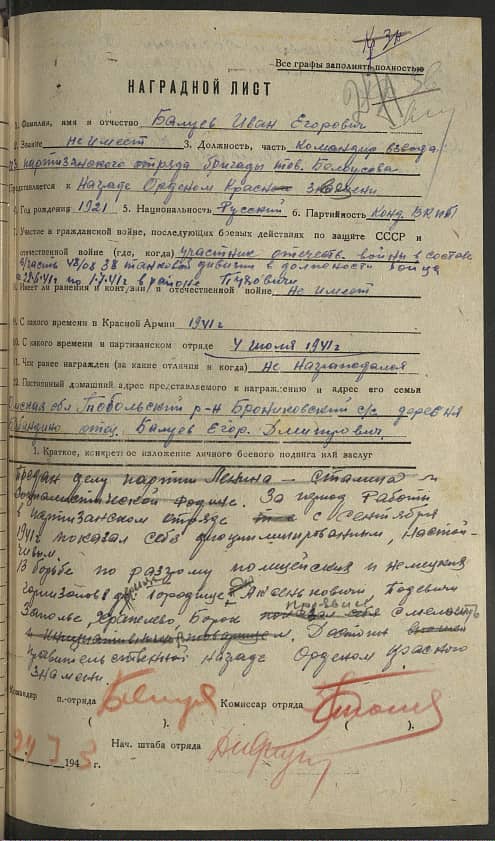 Все графы заполнять полностью
НАГРАДНОЙ ЛИСТ
1. Фамилия, имя и отчество Балуев Иван Егорович
2. Звание не имеет 3. Должность, часть командир взвода
партизанского отряда бригады тов. Белоусова
Представляется к Награде Орденом Красного знамени
4. Год рождения 1921 5. Национальность Русский 6. Партийность Канд. ВКП(б)
7. Участие в гражданской войне, последующих боевых действиях по защите СССР и
отечественной войне (где, когда) участник отечеств войны в составе
38 танковой дивизии в должности бойца
по в районе Пуховичи
8. Имеет ли ранения и контузии в отечественной войне Не имеет
9. С какого времени в Красной Армии 1941 г
10. С какого времени в партизанском отряде 4 июля 1941 г
11. Чем ранее награжден (за какие отличия и когда) Не Награждался
12. Постоянный домашний адрес представляемого к награждению и адрес его семьи
Омская обл Тобольский р-н Брониковский с/с деревня
отец. Балуев Егор. Дмитрович.
1. Краткое, конкретное изложение личного боевого подвига или заслуг
Предан делу партии Ленина — Сталина и
Социалистической Родине. За период Работы
в партизанском отряде с сентября
1941 г показал себя дисциплинированным, настой-
чивым.
В борьбе по разгрому полицейских и немецких
гарнизонов Городище
Заполье, Борок проявил смелость
Достоин
правительственной награде Орденом Красного
Знамени.
Командир п.-отряда Комиссар отряда
( ). ( ).
194 3 г. Нач. штаба отряда